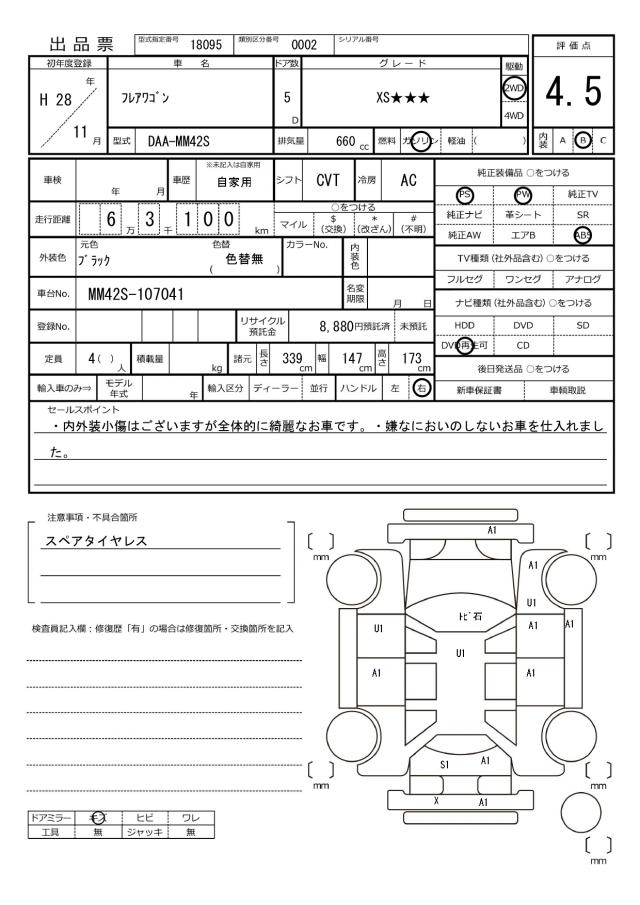 出品票 型式指定番号 18095 類別区分番号 0002 シリアル番号
評価点
4.5
初年度登録 車名 ドア数 グレード 駆動
H 28 年 11 月 フレアワゴン 5 D XS★★★ 2WD 4WD
型式 DAA-MM42S 排気量 660 cc 燃料 ガソリン 軽油 ( ) 内装 A B C
車検 年 月 車歴 ※未記入は自家用 自家用 シフト CVT 冷房 AC
走行距離 6 万 3 千 1 0 0 km ○をつける
マイル $ (交換) * (改ざん) # (不明)
外装色 元色 ブラック 色替 ( 色替無 ) カラーNo. 内装色
車台No. MM42S-107041 名変期限 月 日
登録No. リサイクル預託金 8,880円預託済 未預託
定員 4 ( ) 人 積載量 kg 諸元 長さ 339 cm 幅 147 cm 高さ 173 cm
輸入車のみ⇒ モデル年式 年 輸入区分 ディーラー 並行 ハンドル 左 右
純正装備品 ○をつける
PS PW 純正TV
純正ナビ 革シート SR
純正AW エアB ABS
TV種類 (社外品含む) ○をつける
フルセグ ワンセグ アナログ
ナビ種類 (社外品含む) ○をつける
HDD DVD SD
DVD再生可 CD
後日発送品 ○をつける
新車保証書 車輌取説
セールスポイント
・内外装小傷はございますが全体的に綺麗なお車です。・嫌なにおいのしないお車を仕入れまし
た。
注意事項・不具合箇所
スペアタイヤレス
検査員記入欄：修復歴「有」の場合は修復箇所・交換箇所を記入
ドアミラー キズ ヒビ ワレ
工具 無 ジャッキ 無
A1
〔 〕 mm
〔 〕 mm
A1
U1
トビ石
U1 A1 A1
U1
A1 A1
S1 A1
〔 〕 mm
〔 〕 mm
X A1
〔 〕 mm